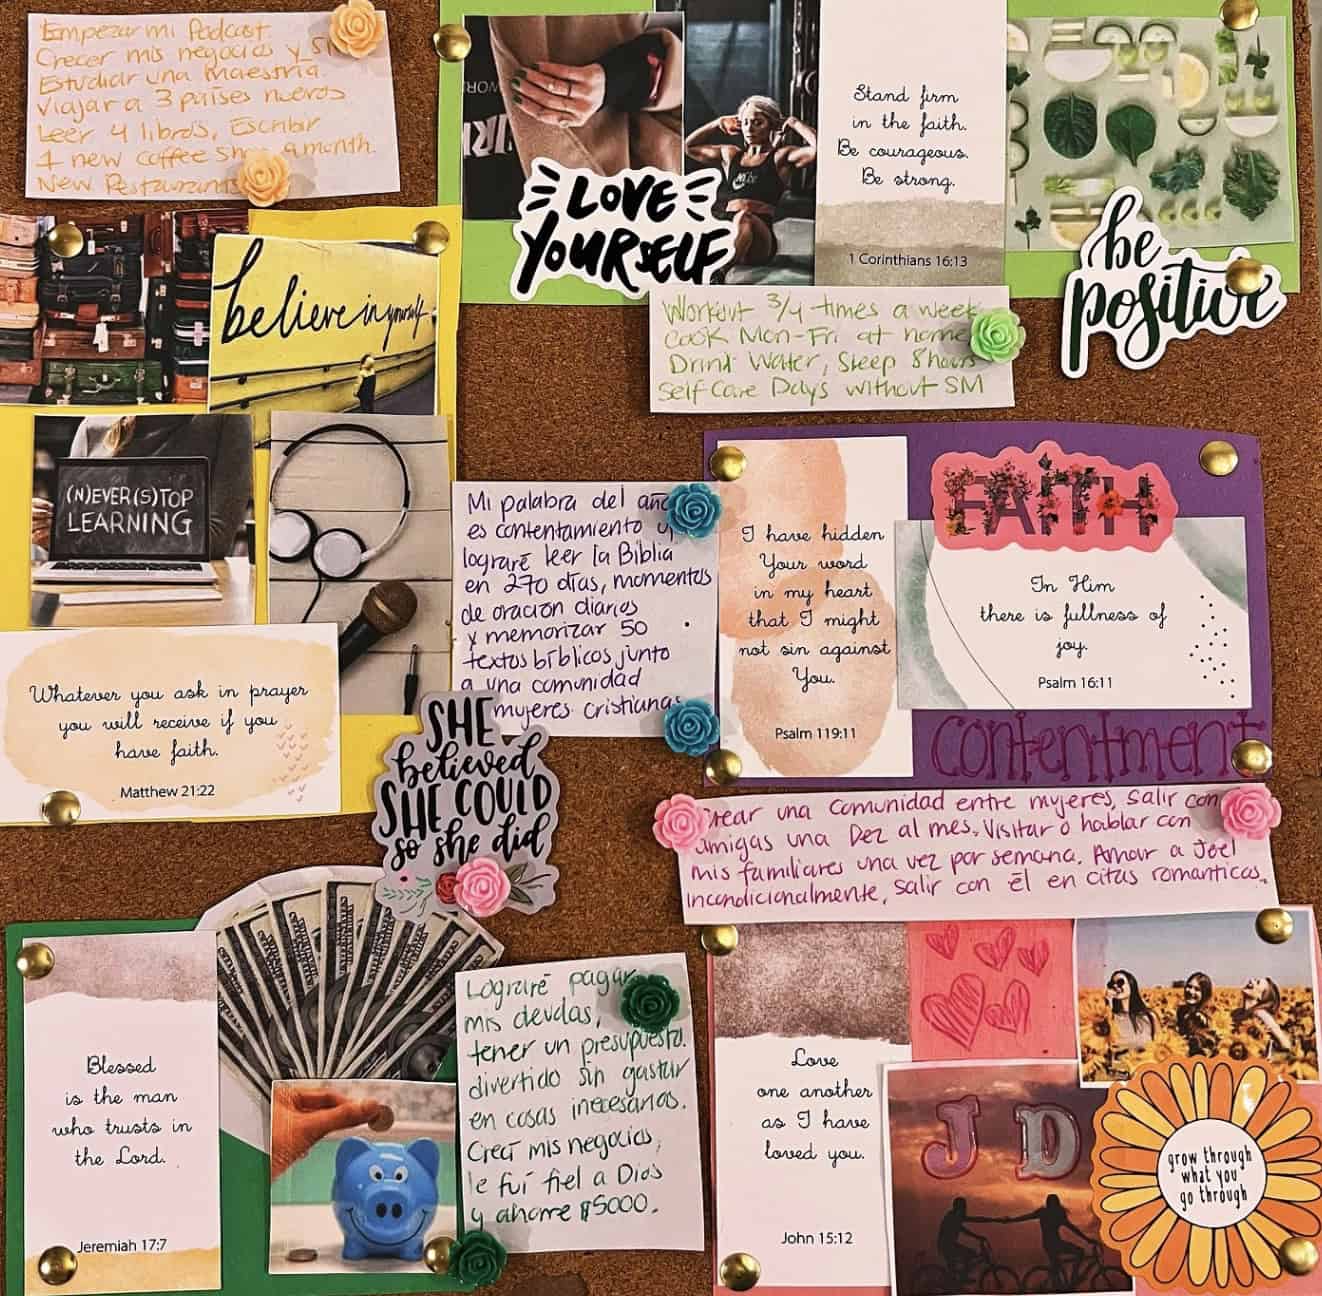 Empezar mi Podcast
Crecer mis negocios y
Estudiar una maestria.
Viajar a 3 países nuevos
Leer 4 libros, Escribir
1 new coffee a month.
New Restaurants
LOVE
YOURSELF
Stand firm
in the faith.
Be courageous.
Be strong.
1 Corinthians 16:13
be
positive
Workout 3/4 times a week
Cook Mon-Fri at home
Drink Water, Sleep 8 hours
Self Care Days without SM
believe in yourself.
(N)EVER(S)TOP
LEARNING
Whatever you ask in prayer
you will receive if you
have faith.
Matthew 21:22
SHE
believed
SHE COULD
so she did
Mi palabra del año
es contentamiento y
lograré leer la Biblia
en 270 días, momentos
de oración diarios
y memorizar 50
textos bíblicos junto
a una comunidad
mujeres cristianas
I have hidden
Your word
in my heart
that I might
not sin against
You.
Psalm 119:11
FAITH
In Him
there is fullness of
joy.
Psalm 16:11
contentment
Crear una comunidad entre mujeres, salir con
amigas una vez al mes. Visitar o hablar con
mis familiares una vez por semana. Amar a Joel
incondicionalmente, salir con él en citas romanticas.
Blessed
is the man
who trusts in
the Lord.
Jeremiah 17:7
Lograré pagar
mis deudas,
tener un presupuesto
divertido sin gastar
en cosas inecesarias.
Creci mis negocios,
le fuí fiel a Dios
y ahorre $5000.
Love
one another
as I have
loved you.
John 15:12
J D
grow through
what you
go through